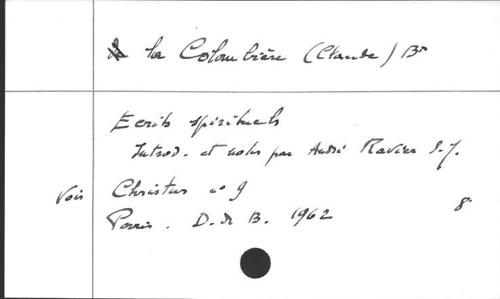 la Colombière (Claude) Bx
Ecrits spirituels
Introd. et notes par André Ravier S.J.
Voir Christus n° 9
Paris. D. de B. 1962 8°